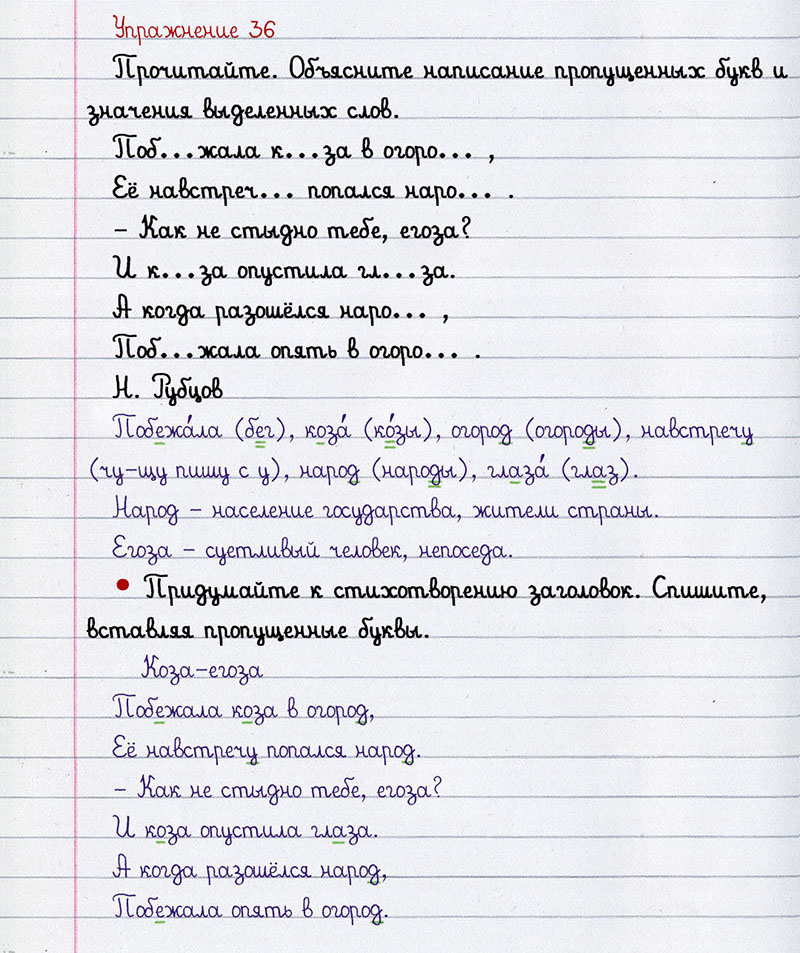 Упражнение 36
Прочитайте. Объясните написание пропущенных букв и
значения выделенных слов.
Поб...жала к...за в огоро... ,
Её навстреч... попался наро... .
– Как не стыдно тебе, егоза?
И к...за опустила гл...за.
А когда разошёлся наро... ,
Поб...жала опять в огоро... .
Н. Рубцов
Побежа́ла (бег), коза́ (ко́зы), огород (огороды), навстречу
(чу-щу пишу с у), народ (народы), глаза́ (глаз).
Народ – население государства, жители страны.
Егоза – суетливый человек, непоседа.
• Придумайте к стихотворению заголовок. Спишите,
вставляя пропущенные буквы.
Коза-егоза
Побежала коза в огород,
Её навстречу попался народ.
– Как не стыдно тебе, егоза?
И коза опустила глаза.
А когда разошёлся народ,
Побежала опять в огород.